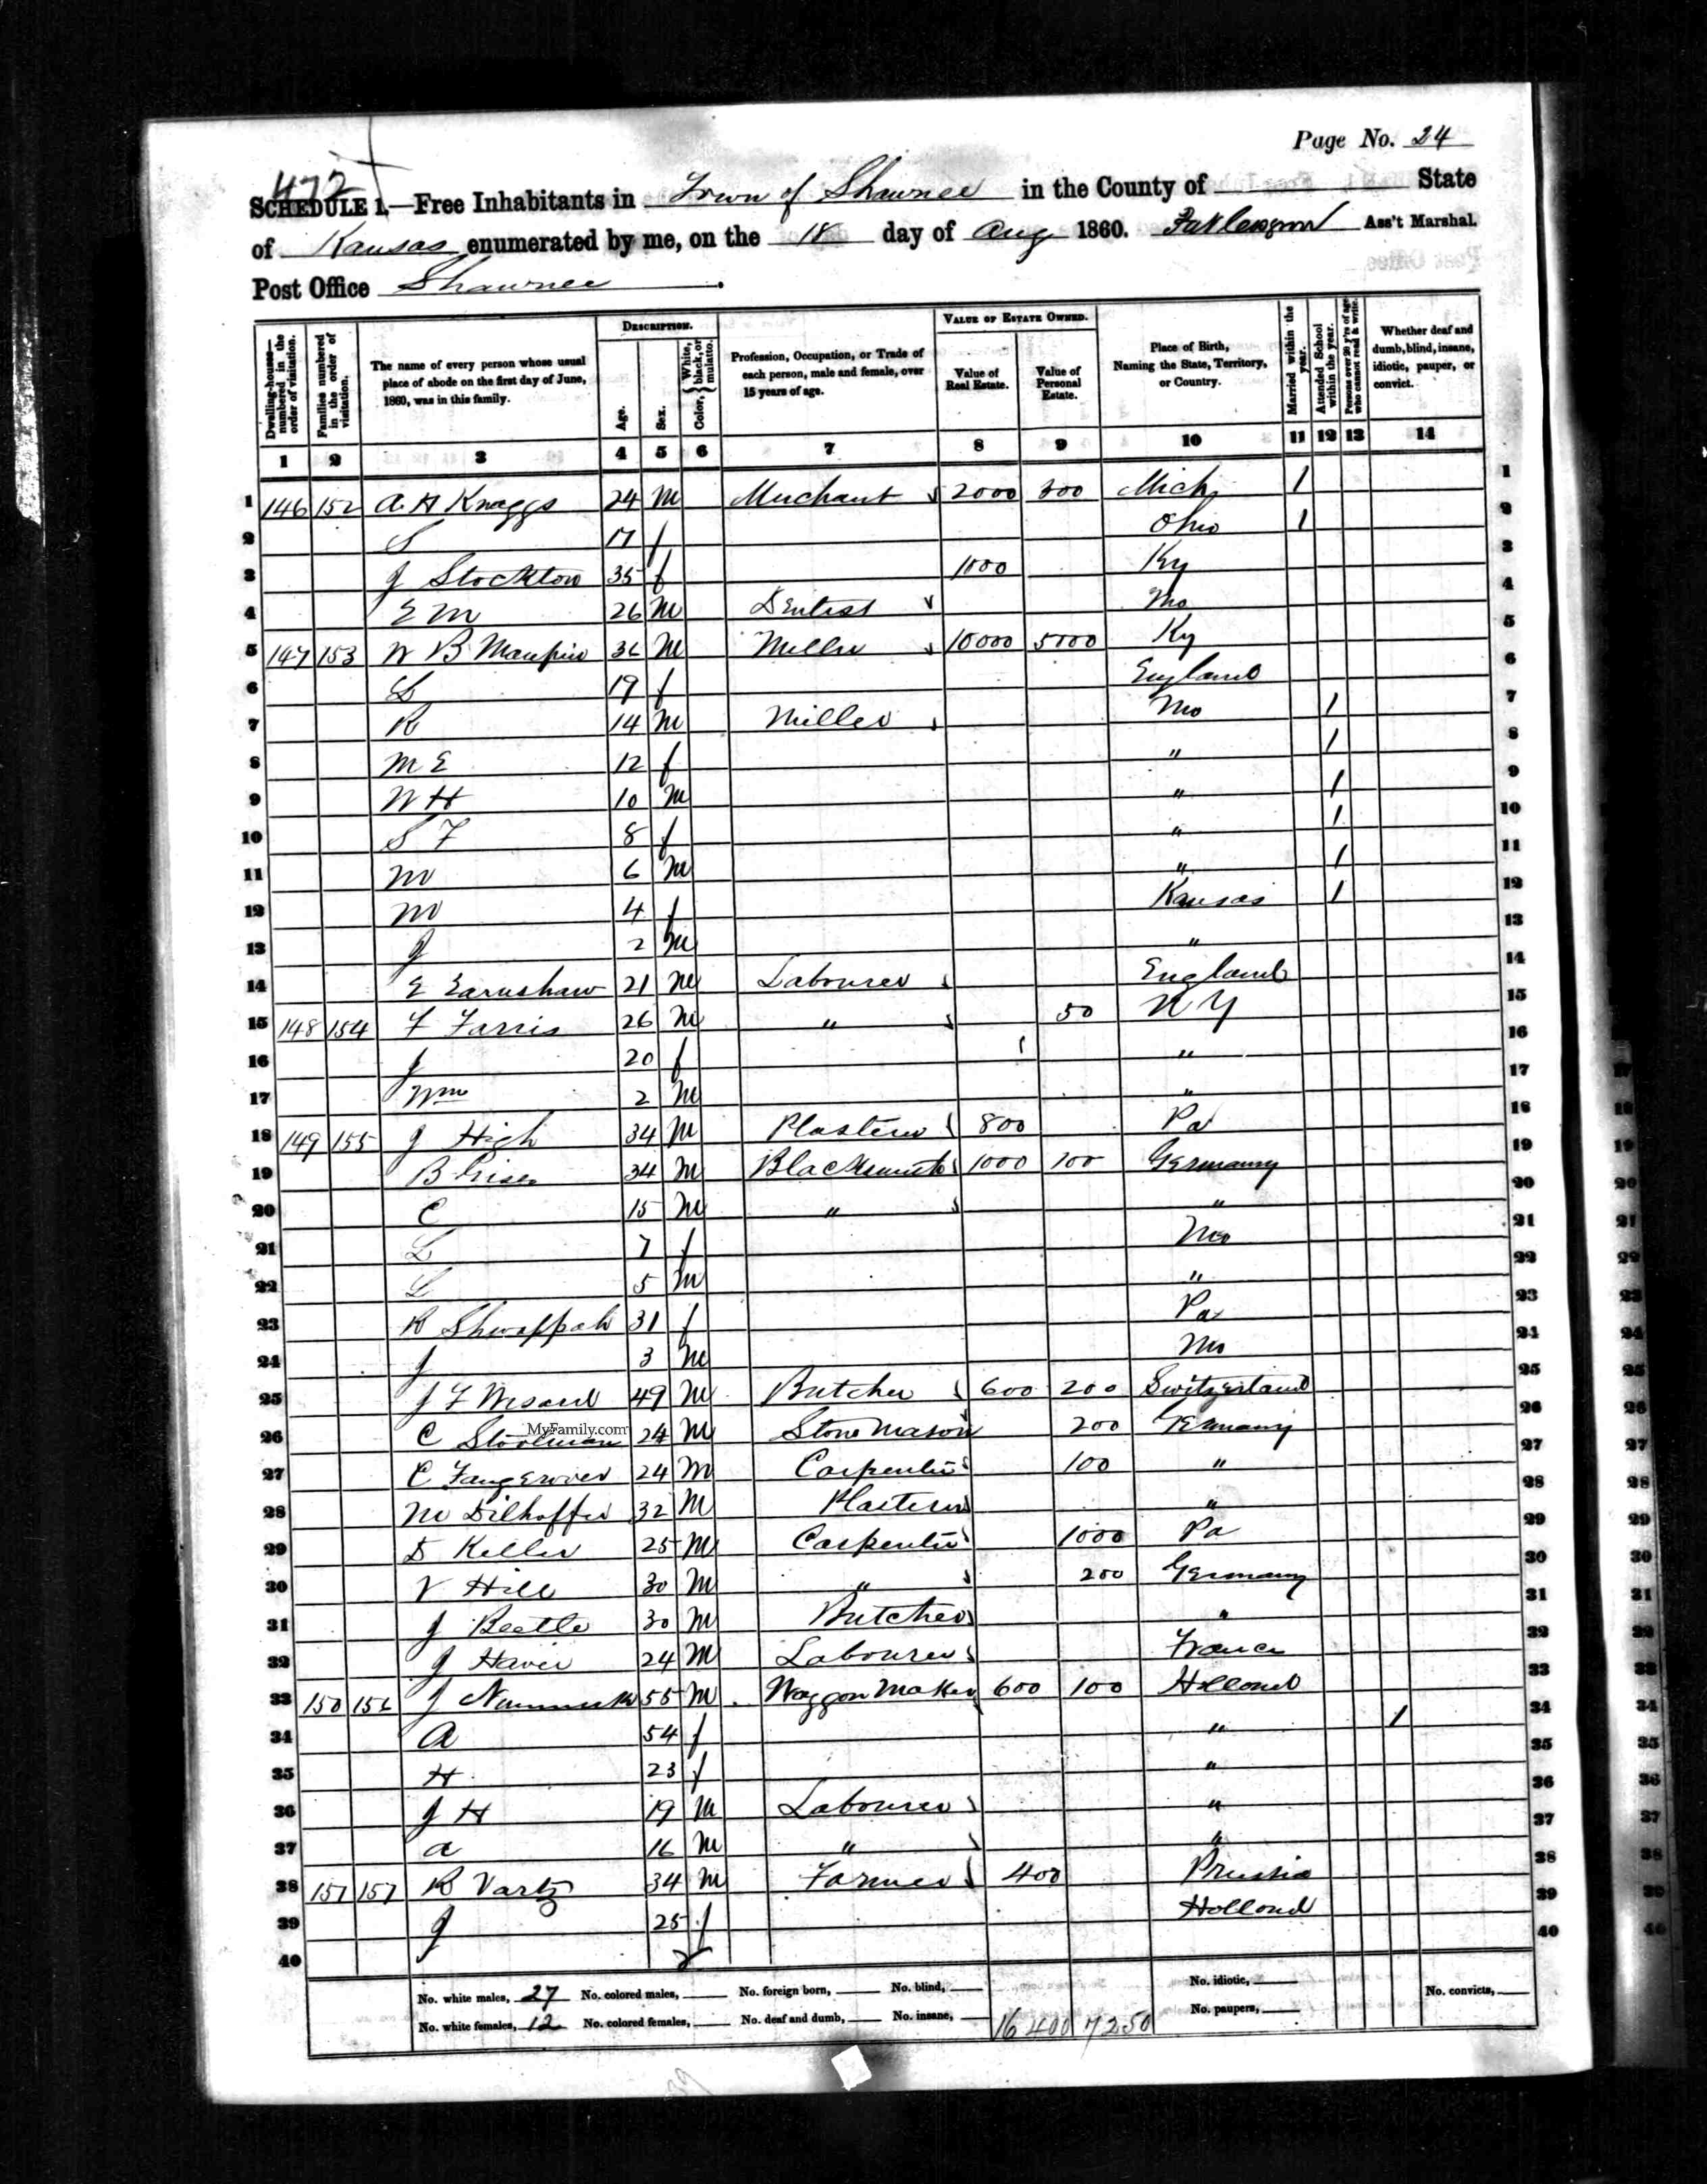 Page No. 24
472
SCHEDULE 1.—Free Inhabitants in Town of Shawnee in the County of State
of Kansas enumerated by me, on the 18 day of Aug 1860. Ass't Marshal.
Post Office Shawnee.
Dwelling-houses—numbered in the order of visitation.
Families numbered in the order of visitation.
The name of every person whose usual place of abode on the first day of June, 1860, was in this family.
DESCRIPTION.
Age.
Sex.
Color, { White, black, or mulatto.
Profession, Occupation, or Trade of each person, male and female, over 15 years of age.
VALUE OF ESTATE OWNED.
Value of Real Estate.
Value of Personal Estate.
Place of Birth, Naming the State, Territory, or Country.
Married within the year.
Attended School within the year.
Persons over 20 y'rs of age who cannot read & write.
Whether deaf and dumb, blind, insane, idiotic, pauper, or convict.
1 2 3 4 5 6 7 8 9 10 11 12 13 14
1 146 152 A. H Knaggs 24 M Merchant 2000 300 Mich 1 1
2 S 17 f Ohio 1 2
3 J Stockton 35 f 1000 Ky 3
4 E M 26 M Dentist Mo 4
5 147 153 W B Maupin 36 M Miller 10000 5000 Ky 5
6 L 19 f England 6
7 R 14 M Miller Mo 1 7
8 M E 12 f " 1 8
9 W H 10 M " 1 9
10 S F 8 f " 1 10
11 M 6 M " 1 11
12 M 4 f Kansas 1 12
13 J 2 M " 13
14 E Earnshaw 21 M Labourer England 14
15 148 154 F Farris 26 M " 50 N Y 15
16 J 20 f " 16
17 Wm 2 M " 17
18 149 155 J High 34 M Plasterer 800 Pa 18
19 B 34 M Blacksmith 1000 100 Germany 19
20 C 15 M " " 20
21 L 7 f Mo 21
22 L 5 M " 22
23 R Shwappah 31 f Pa 23
24 J 3 M Mo 24
25 J F 49 M Butcher 600 200 Switzerland 25
26 C Stoolman 24 M Stone Mason 200 Germany 26
MyFamily.com
27 C 24 M Carpenter 100 " 27
28 M Dilhoffer 32 M Plasterer " 28
29 D Keller 25 M Carpenter 1000 Pa 29
30 V Hill 30 M " 200 Germany 30
31 J Beetle 30 M Butcher " 31
32 J Haver 24 M Labourer France 32
33 150 156 J 55 M Waggon Maker 600 100 Holland 33
34 A 54 f " 1 34
35 H 23 f " 35
36 J H 19 M Labourer " 36
37 A 16 M " " 37
38 151 157 R Vartz 34 M Farmer 400 Prussia 38
39 J 25 f Holland 39
40 40
No. white males, 27 No. colored males, No. foreign born, No. blind, No. idiotic, No. convicts,
No. white females, 12 No. colored females, No. deaf and dumb, No. insane, 16400 7250 No. paupers,